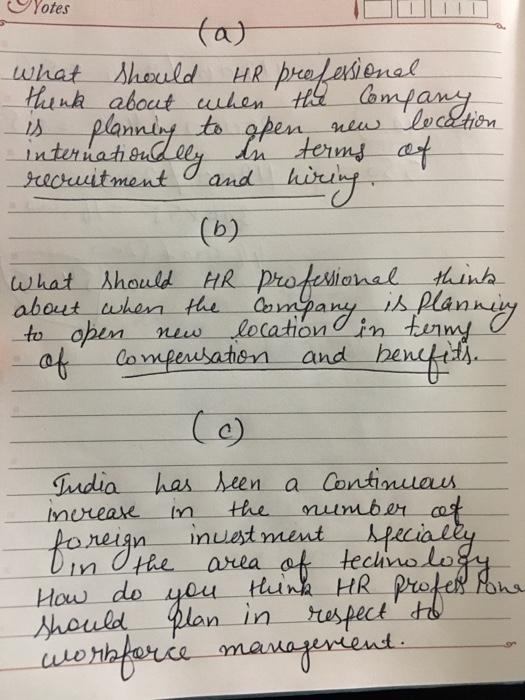 Notes
(a)
What should HR professional
think about when the Company
is planning to open new location
internationally in terms of
recruitment and hiring.
(b)
What should HR professional think
about when the Company is Planning
to open new location in terms
of Compensation and benefits.
(c)
India has seen a Continuous
increase in the number of
foreign investment specially
in the area of technology
How do you think HR professiona
should plan in respect to
workforce management.